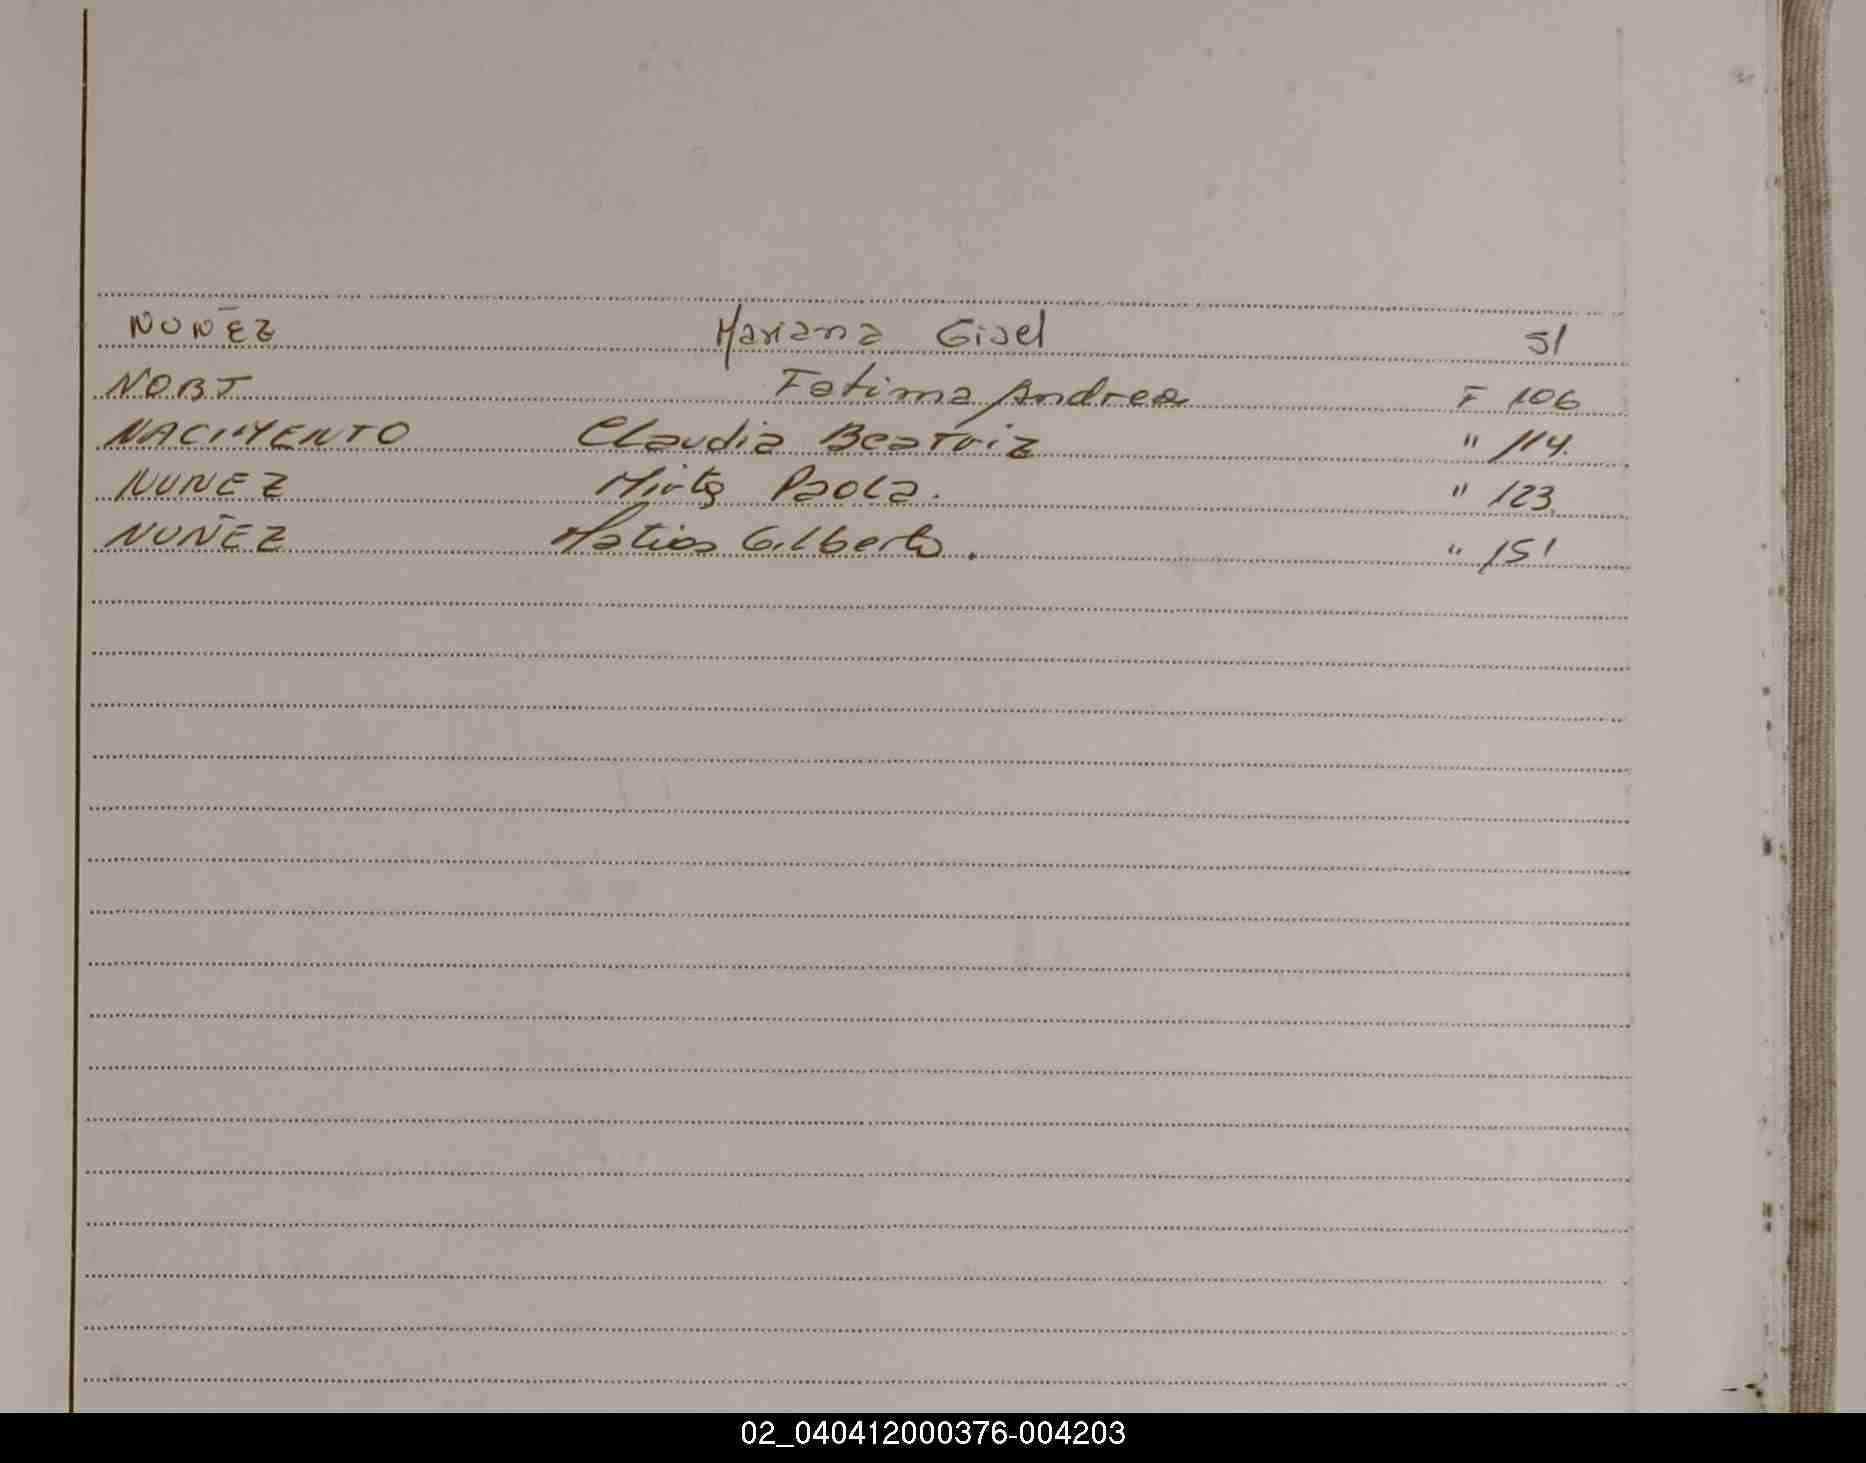 NUÑEZ Mariana Gisel 51
NOBT Fatima Andrea F 106
NACIMENTO Claudia Beatriz " 114.
NUNEZ Mirta Paola. " 123.
NUÑEZ Matias Gilberto. " 151
02_040412000376-004203